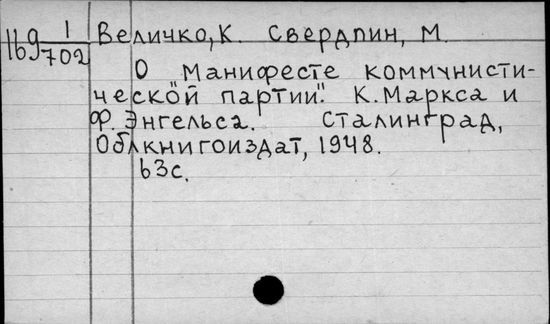 169 1/702
Величко, К. Свердлин, М.
О "Манифесте коммунисти-
ческой партии". К. Маркса и
Ф. Энгельса. Сталинград,
Облкнигоиздат, 1948.
63с.